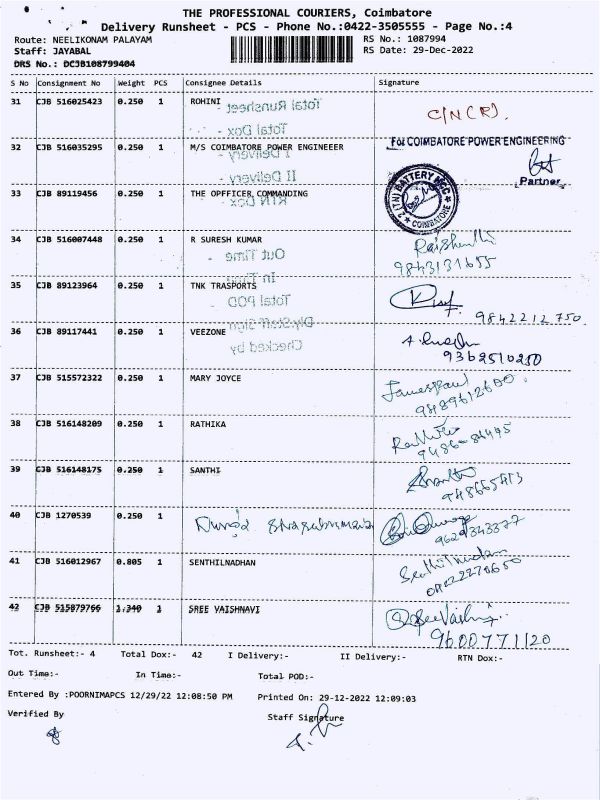 THE PROFESSIONAL COURIERS, Coimbatore
Delivery Runsheet - PCS - Phone No.:0422-3505555 - Page No.:4
Route: NEELIKONAM PALAYAM RS No.: 1087994
Staff: JAYABAL RS Date: 29-Dec-2022
DRS No.: DCJB108799404
S No Consignment No Weight PCS Consignee Details Signature
31 CJB 516025423 0.250 1 ROHINI C/N(R).
Total Runsheet
Total Dox
For COIMBATORE POWER ENGINEERING
32 CJB 516035295 0.250 1 M/S COIMBATORE POWER ENGINEEER
I Delivery
II Delivery
Partner
33 CJB 89119456 0.250 1 THE OPFFICER COMMANDING
2 (TN) BATTERY NCC COIMBATORE
RTN Dox
34 CJB 516007448 0.250 1 R SURESH KUMAR
Out Time
9843131655
In Time
35 CJB 89123964 0.250 1 TNK TRASPORTS
Total POD
9842212750
Dly.Staff Sign
36 CJB 89117441 0.250 1 VEEZONE
Checked by
9362510250
37 CJB 515572322 0.250 1 MARY JOYCE
Jamespaul
9489612600.
38 CJB 516148209 0.250 1 RATHIKA
39 CJB 516148175 0.250 1 SANTHI
40 CJB 1270539 0.250 1
9629343377
41 CJB 516012967 0.805 1 SENTHILNADHAN
42 CJB 515879766 1.340 1 SREE VAISHNAVI
9600771120
Tot. Runsheet:- 4 Total Dox:- 42 I Delivery:- II Delivery:- RTN Dox:-
Out Time:- In Time:- Total POD:-
Entered By :POORNIMAPCS 12/29/22 12:08:50 PM Printed On: 29-12-2022 12:09:03
Verified By Staff Signature